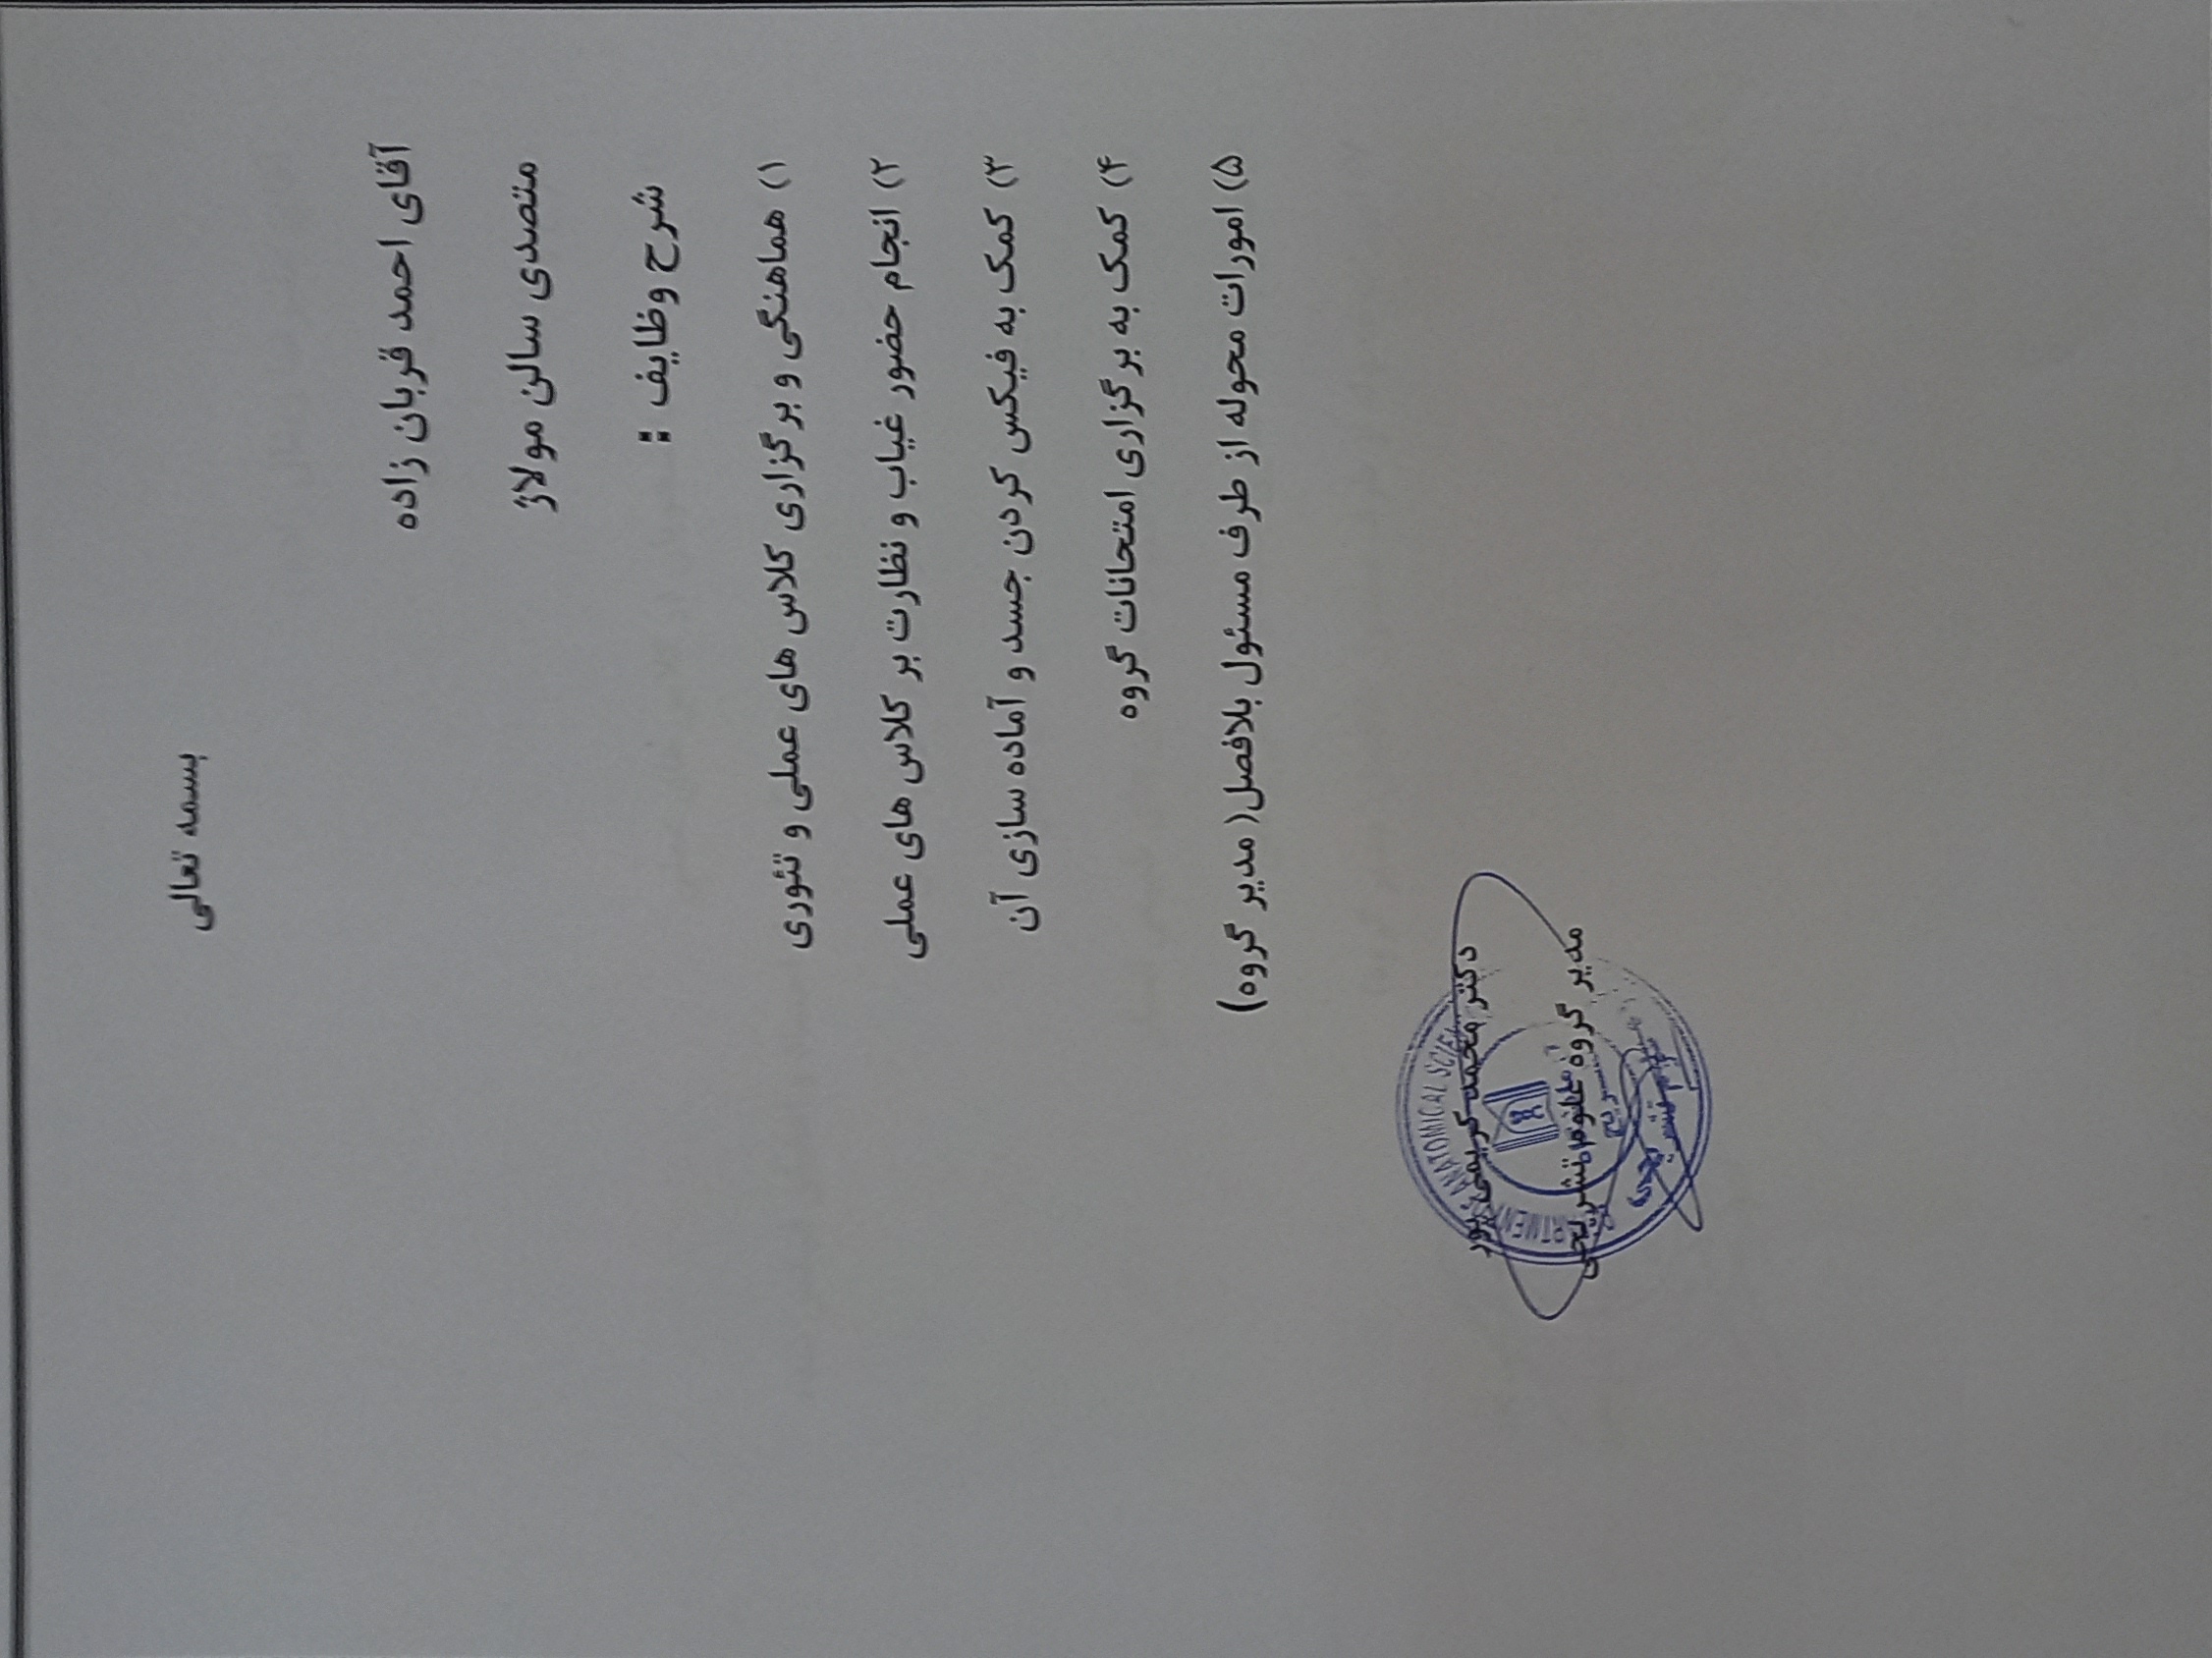 بسمه تعالی
آقای احمد قربان زاده
متصدی سالن مولاژ
شرح وظایف :
۱) هماهنگی و برگزاری کلاس های عملی و تئوری
۲) انجام حضور غیاب و نظارت بر کلاس های عملی
۳) کمک به فیکس کردن جسد و آماده سازی آن
۴) کمک به برگزاری امتحانات گروه
۵) امورات محوله از طرف مسئول بلافصل( مدیر گروه)
دکتر محمد کریمی پور
مدیر گروه علوم تشریحی
ANATOMICAL